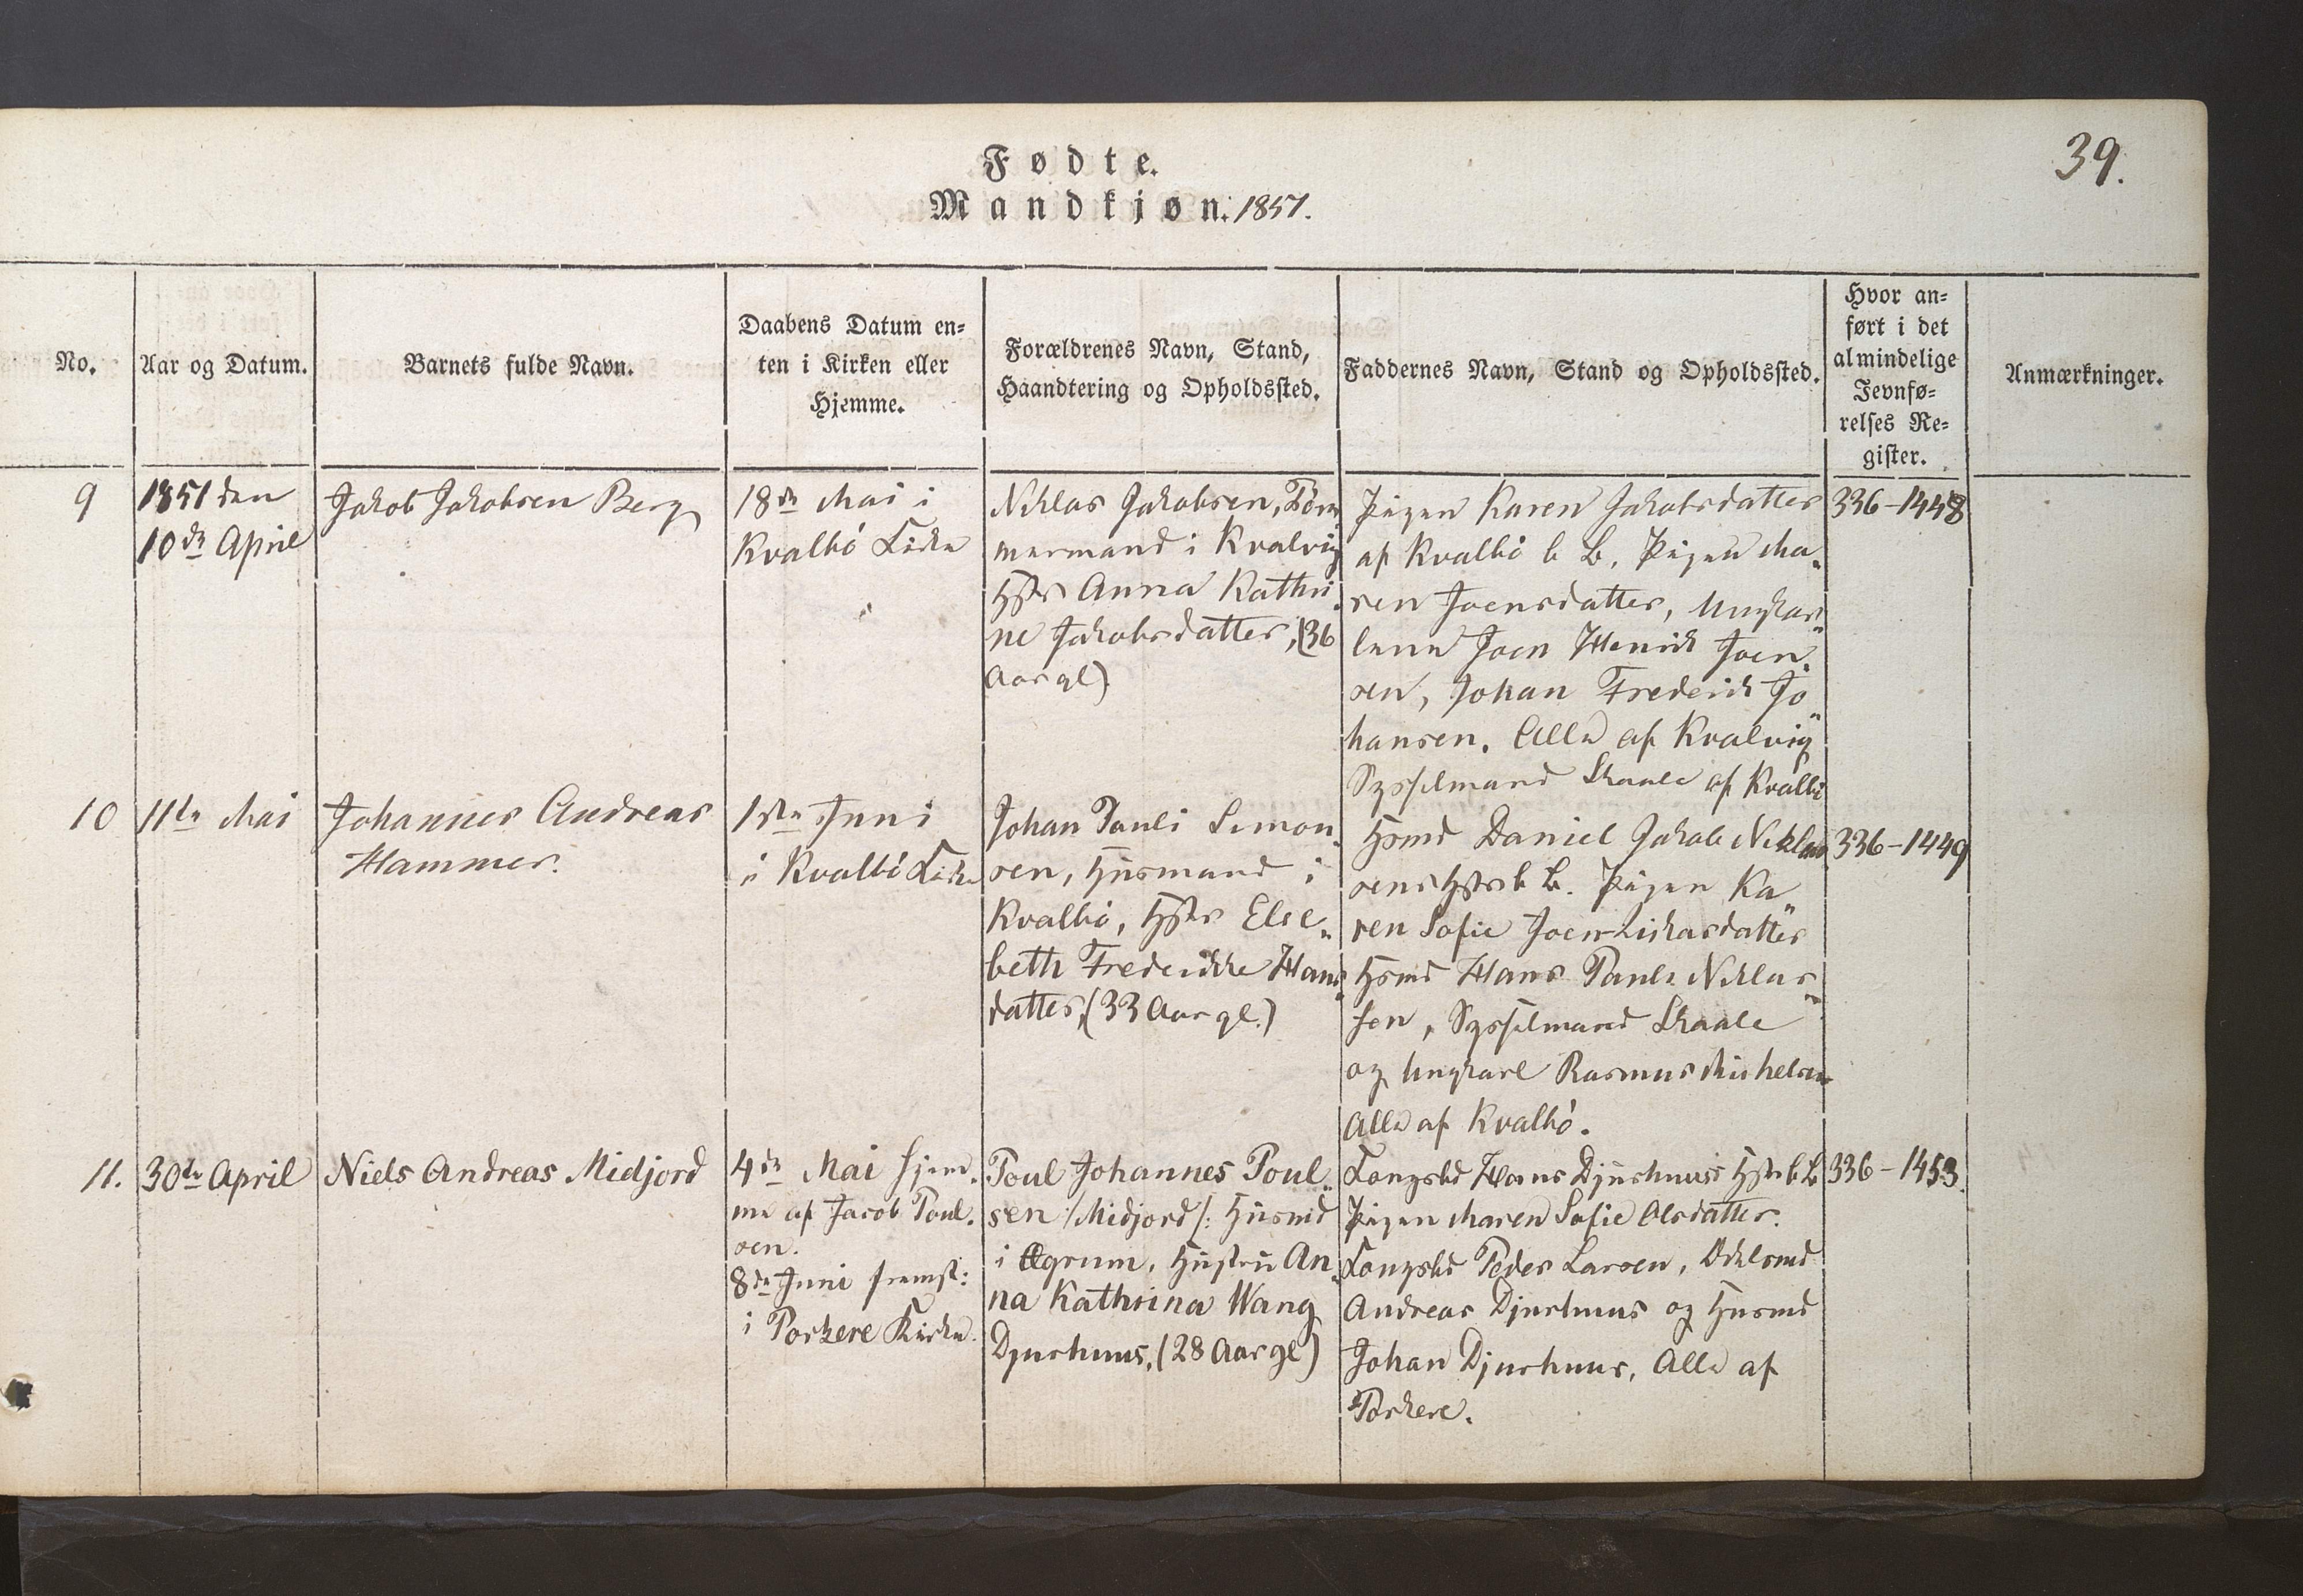 39.
Fødte.
Mandkjøn. 1851.
No.
Aar og Datum.
Barnets fulde Navn.
Daabens Datum en-
ten i Kirken eller
Hjemme.
Forældrenes Navn, Stand,
Haandtering og Opholdssted.
Faddernes Navn, Stand og Opholdssted.
Hvor an-
ført i det
almindelige
Jevnfø-
relses Re-
gister.
Anmærkninger.
9
1851 den
10de April
Jakob Jakobsen Berg
18de Mai i
Kvalbö Kirke
Niklas Jakobsen, Töm
mermand i Kvalvig
Hstr Anna Kathri-
ne Jakobsdatter, (36
Aar gl)
Pigen Karen Jakobsdatter
af Kvalbö b B. Pigen Ma-
ren Joensdatter, Ungkar-
lene Joen Henrik Joen-
sen, Johan Frederik Jo-
hansen. Alle af Kvalvig
Sysselmand Skaale af Kvalbö
336-1448
10
11te Mai
Johannes Andreas
Hammer.
1ste Juni
i Kvalbö Kirke
Johan Pauli Simon-
sen, Husmand i
Kvalbö, Hstr Else-
beth Frederikke Hans-
datter, (33 Aar gl.)
Hsmd Daniel Jakob Niklas
sens Hstr b B. Pigen Ka-
ren Sofie Joen-Lukasdatter
Hsmd Hans Pauli Niklas-
sen, Sysselmand Skaale
og Ungkarl Rasmus Mikkelsen
Alle af Kvalbö.
336-1449
11.
30te April
Niels Andreas Midjord
4de Mai hjem-
me af Jacob Poul-
sen.
8de Juni fremst:
i Porkere Kirke.
Poul Johannes Poul-
sen /Midjord/: Husmd
i Øgrum, Hustru An-
na Kathrina Wang
Djurhuus, (28 Aar gl)
Kongsbd Hans Djurhuus Hstr b B
Pigen Maren Sofie Olsdatter.
Kongsbd Peder Larsen, Odelsmd
Andreas Djurhuus og Husmd
Johan Djurhuus, Alle af
Porkere.
336-1453.